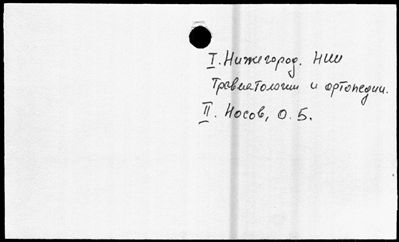 I. Нижегород. НИИ
травматологии и ортопедии.
II. Носов, О. Б.